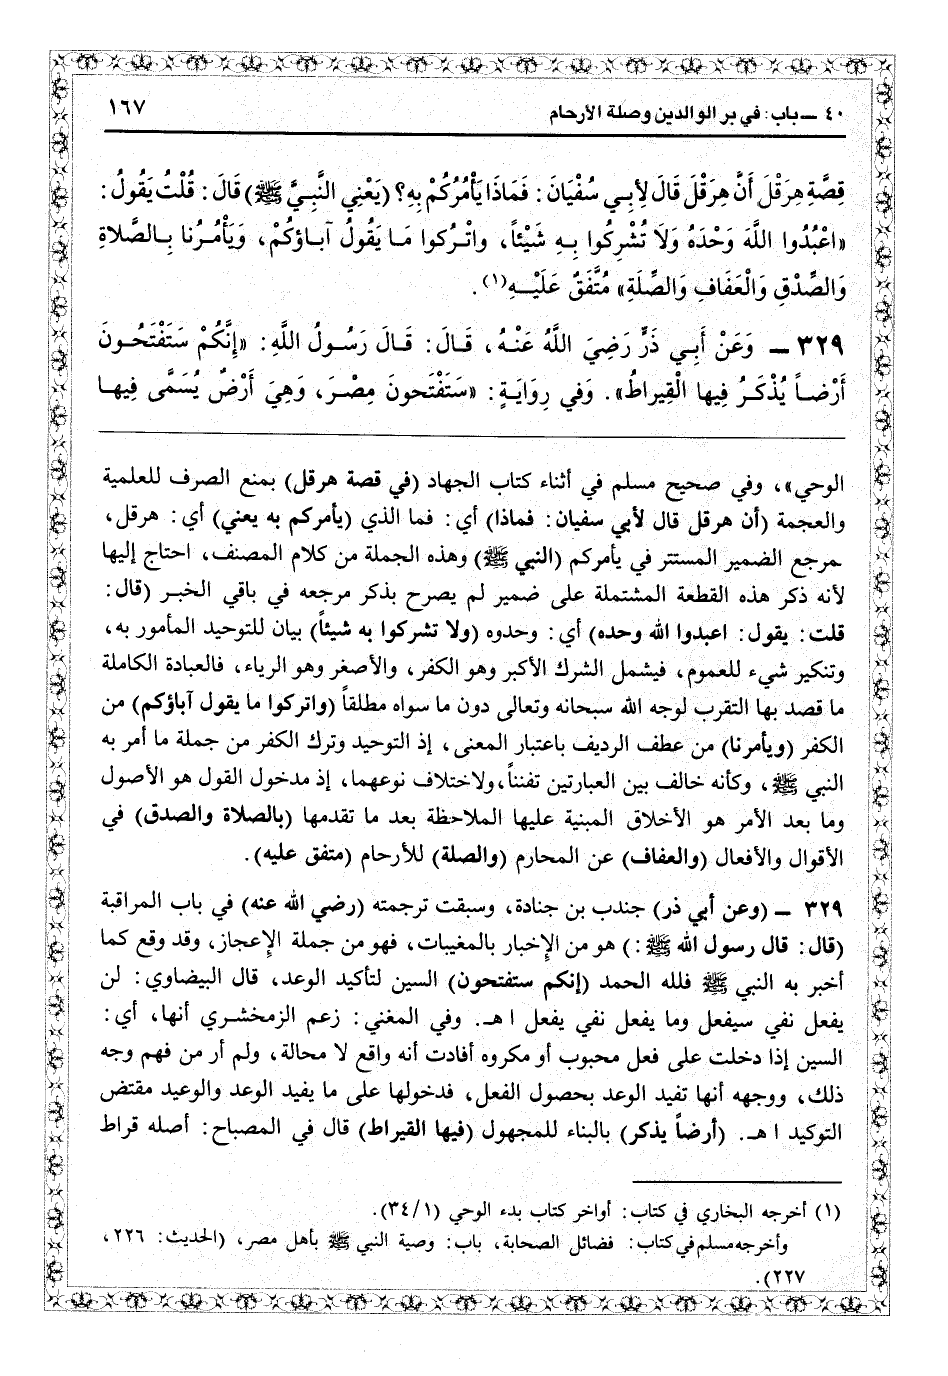 ٤٠ – باب: في بر الوالدين وصلة الأرحام ١٦٧
قِصَّةِ هِرَقْلَ أَنَّ هِرَقْلَ قَالَ لِأَبِي سُفْيَانَ: فَمَاذَا يَأْمُرُكُمْ بِهِ؟ (يَعْنِي النَّبِيَّ ﷺ) قَالَ: قُلْتُ يَقُولُ:
«اعْبُدُوا اللَّهَ وَحْدَهُ وَلَا تُشْرِكُوا بِهِ شَيْئاً، واتْرُكوا مَا يَقُولُ آبَاؤكُمْ، وَيَأْمُرُنا بِالصَّلاةِ
وَالصِّدْقِ وَالْعَفَافِ وَالصِّلَةِ» مُتَّفَقٌ عَلَيْهِ(١).
٣٢٩ – وَعَنْ أَبِي ذَرٍّ رَضِيَ اللَّهُ عَنْهُ، قَالَ: قَالَ رَسُولُ اللَّهِ: «إِنَّكُمْ سَتَفْتَحُونَ
أَرْضاً يُذْكَرُ فِيها الْقِيراطُ». وَفي رِوَايَةٍ: «سَتَفْتَحونَ مِصْرَ، وَهِيَ أَرْضٌ يُسَمَّى فِيهَا
الوحي»، وفي صحيح مسلم في أثناء كتاب الجهاد (في قصة هرقل) بمنع الصرف للعلمية
والعجمة (أن هرقل قال لأبي سفيان: فماذا) أي: فما الذي (يأمركم به يعني) أي: هرقل،
بمرجع الضمير المستتر في يأمركم (النبي ﷺ) وهذه الجملة من كلام المصنف، احتاج إليها
لأنه ذكر هذه القطعة المشتملة على ضمير لم يصرح بذكر مرجعه في باقي الخبر (قال:
قلت: يقول: اعبدوا الله وحده) أي: وحدوه (ولا تشركوا به شيئاً) بيان للتوحيد المأمور به،
وتنكير شيء للعموم، فيشمل الشرك الأكبر وهو الكفر، والأصغر وهو الرياء، فالعبادة الكاملة
ما قصد بها التقرب لوجه الله سبحانه وتعالى دون ما سواه مطلقاً (واتركوا ما يقول آباؤكم) من
الكفر (ويأمرنا) من عطف الرديف باعتبار المعنى، إذ التوحيد وترك الكفر من جملة ما أمر به
النبي ﷺ، وكأنه خالف بين العبارتين تفنناً، ولاختلاف نوعهما، إذ مدخول القول هو الأصول
وما بعد الأمر هو الأخلاق المبنية عليها الملاحظة بعد ما تقدمها (بالصلاة والصدق) في
الأقوال والأفعال (والعفاف) عن المحارم (والصلة) للأرحام (متفق عليه).
٣٢٩ – (وعن أبي ذر) جندب بن جنادة، وسبقت ترجمته (رضي الله عنه) في باب المراقبة
(قال: قال رسول الله ﷺ:) هو من الإخبار بالمغيبات، فهو من جملة الإعجاز، وقد وقع كما
أخبر به النبي ﷺ فلله الحمد (إنكم ستفتحون) السين لتأكيد الوعد، قال البيضاوي: لن
يفعل نفي سيفعل وما يفعل نفي يفعل اهـ. وفي المغني: زعم الزمخشري أنها، أي:
السين إذا دخلت على فعل محبوب أو مكروه أفادت أنه واقع لا محالة، ولم أر من فهم وجه
ذلك، ووجهه أنها تفيد الوعد بحصول الفعل، فدخولها على ما يفيد الوعد والوعيد مقتض
التوكيد اهـ. (أرضاً يذكر) بالبناء للمجهول (فيها القيراط) قال في المصباح: أصله قراط
(١) أخرجه البخاري في كتاب: أواخر كتاب بدء الوحي (٣٤/١).
وأخرجه مسلم في كتاب: فضائل الصحابة، باب: وصية النبي ﷺ بأهل مصر، (الحديث: ٢٢٦،
٢٢٧).